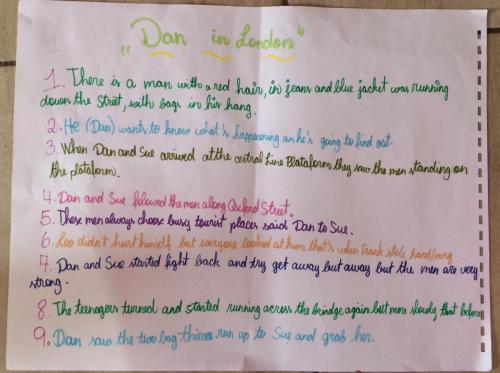 "Dan in London"
1. There is a man with a red hair, in jeans and blue jacket was running
down the street, with bags in his hang.
2. He (Dan) wants to know what's happenening an he's going to find out.
3. When Dan and Sue arrived at the central Line Plataform they saw the men standing on
the plataform.
4. Dan and Sue folowed the men along Oxford Street.
5. These men always choose busy tourist places said Dan to Sue.
6. Leo didn't hurt himself but everyone looked at him that's when Frank stole handbang.
7. Dan and Sue started fight back and try get away but away but the men are very
strong.
8. The teenagers turned and started running across the bridge again but more slowly that before
9. Dan saw the two bag thieves run up to Sue and grab her.